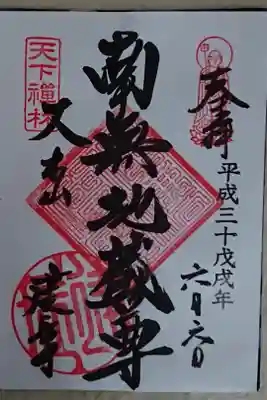 奉拝
平成三十戊戌年
六月六日
南無地蔵尊
天下禅林
建長寺